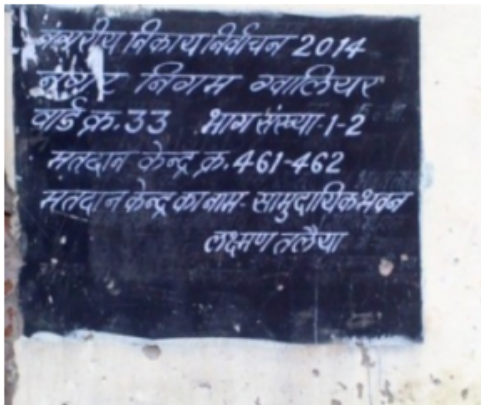 नगरीय निकाय निर्वाचन 2014
नगर निगम ग्वालियर
वार्ड क्र. 33 भाग संख्या-1-2
मतदान केन्द्र क्र. 461-462
मतदान केन्द्र का नाम- सामुदायिक भवन
लक्ष्मण तलैया